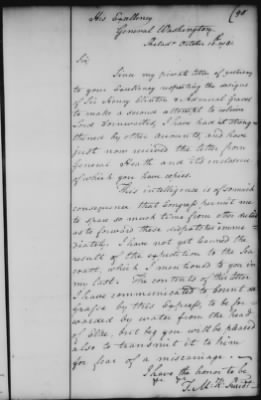 (90
His Excellency
General Washington
October 16th 1781
Sir
Since my private letter of yesterday
to your Excellency respecting the designs
of Sir Henry Clinton & Admiral Graves
to make a second attempt to relieve
Lord Cornwallis, I have had it streng
thened by other accounts, and have
just now received the letter from
General Heath and its inclosures
of which you have copies.
This intelligence is of so much
consequence that Congress permit me
to spare so much time from other duties
as to forward these dispatches imme
diately. I have not yet learned the
result of the expedition to the Sea
coast, which I mentioned to you in
my last. The contents of this letter
I have communicated to Count de
Grasse by this Express, to be for
warded by water from the head
of Elke, but beg you will be pleased
also to transmit it to him
for fear of a miscarriage.
I have the honor to be
T. M. K. Presidt